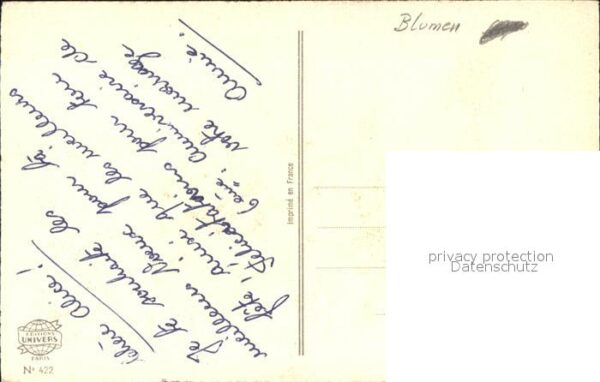 Chère Alice !
Je te souhaite les
meilleurs voeux pour ta
fête ainsi que les meilleurs
Félicitations pour ton
6ème Anniversaire de
votre mariage
Annie.
Blumen
Imprimé en France
EDITIONS
UNIVERS
PARIS
No 422
privacy protection
Datenschutz